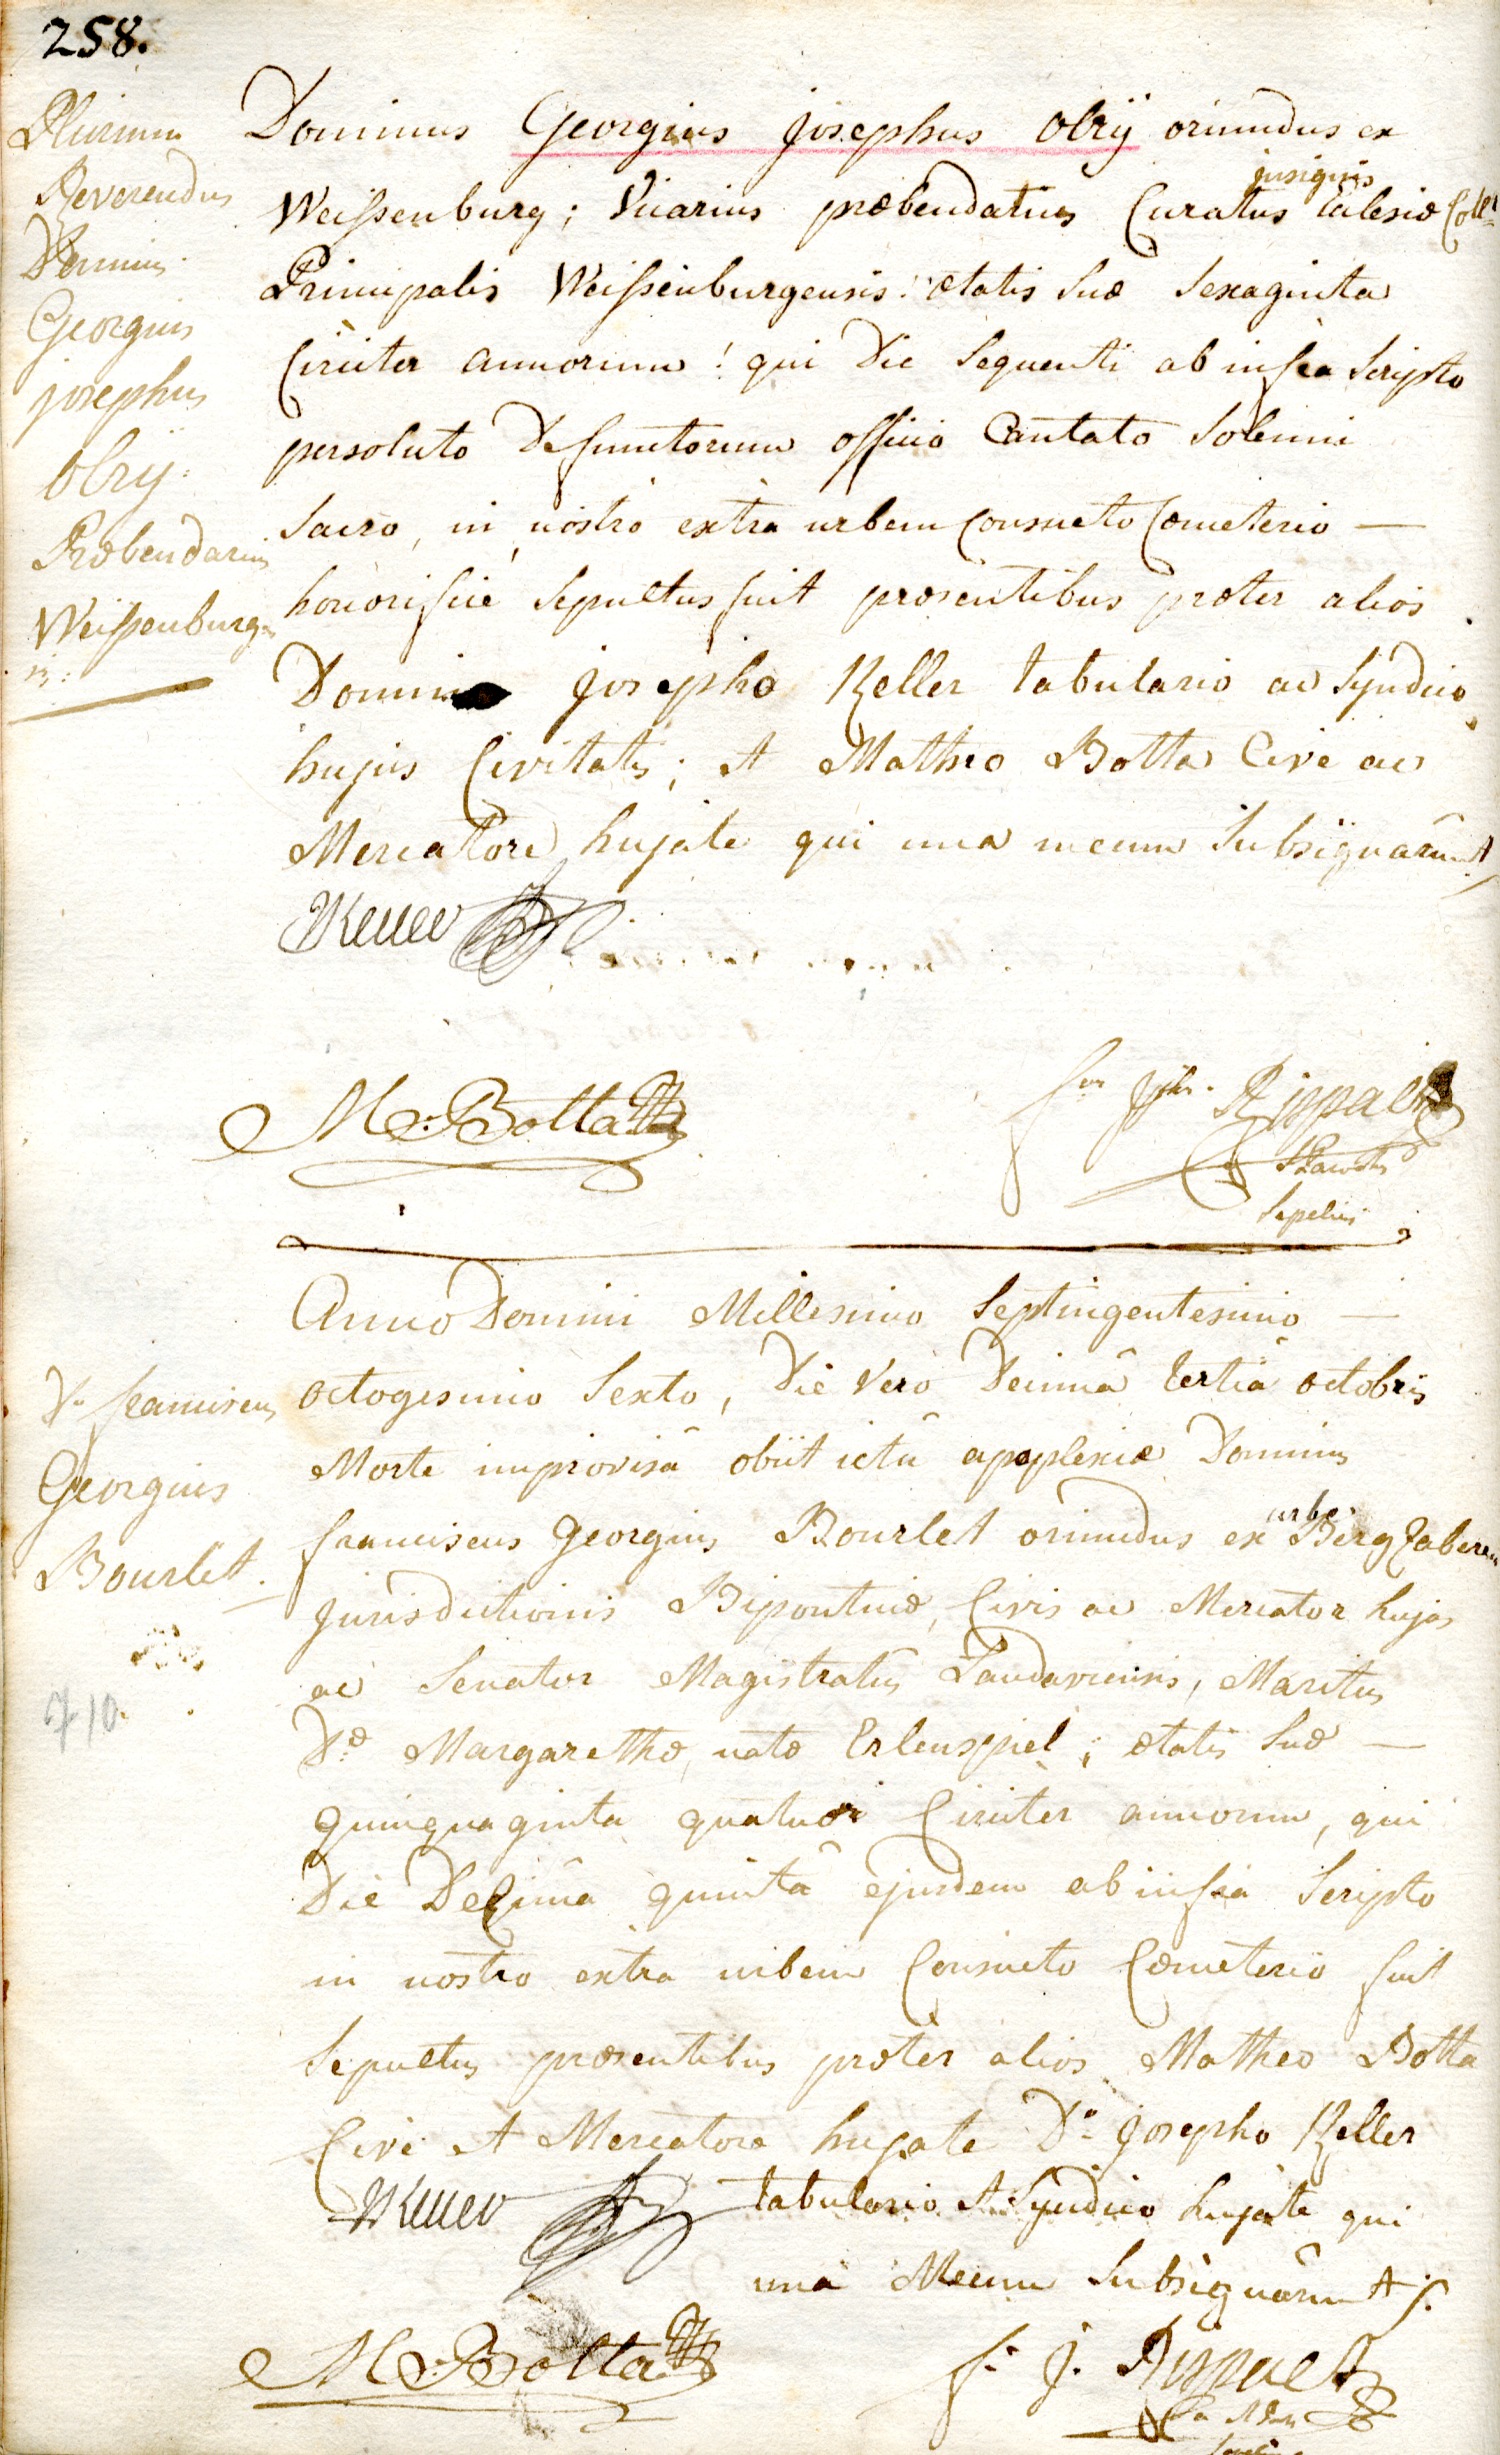 258.
Plurimum
Reverendus
Dominus
Georgius
josephus
Olrÿ.
Præbendarius
Weissenburg-
Dominus Georgius josephus Olrÿ oriundus ex
insignis
Weissenburg; Vicarius præbendatus Curatus Eclesiæ Coll
Principalis Weissenburgensis: ætatis suæ sexaginta
Circiter annorum! qui die sequenti ab infra scripto
persoluto Defunctorum officio Cantato solemni
sacro, in nostro extra urbem Consueto Cœmeterio —
honorificè sepultus fuit præsentibus præter alios
Domino josepho Keller tabulario ac Syndico
hujus Civitatis; et Matheo Botta Cive ac
Mercatore hujate qui una mecum subsignarunt
Keller
M: Botta
Rippaert
Sepelivi
Anno Domini Millesimo Septingentesimo —
octogesimo sexto, die vero Decimâ tertiâ octobris
Morte improvisâ obiit ictu apoplexiæ Dominus
franciscus georgius Bourlet oriundus ex urbe Bergzaberen
jurisdictionis Bipontinæ, Civis ac Mercator hujas
ac Senator Magistratûs Landaviensis, Maritus
Dæ Margarethæ, natæ Erlenspiel; ætatis suæ —
quinquaginta quatuor Circiter annorum, qui
Die Decimâ quintâ ejusdem ab infra scripto
in nostro extra urbem Consueto Cœmeterio fuit
sepultus præsentibus præter alios Matheo Botta
Cive et Mercatore hujate Do josepho Keller
tabulario et Syndico hujate qui
unâ Mecum subsignârunt
Ds franciscus
Georgius
Bourlet.
710.
Keller
M: Botta
f. J. Rippaert